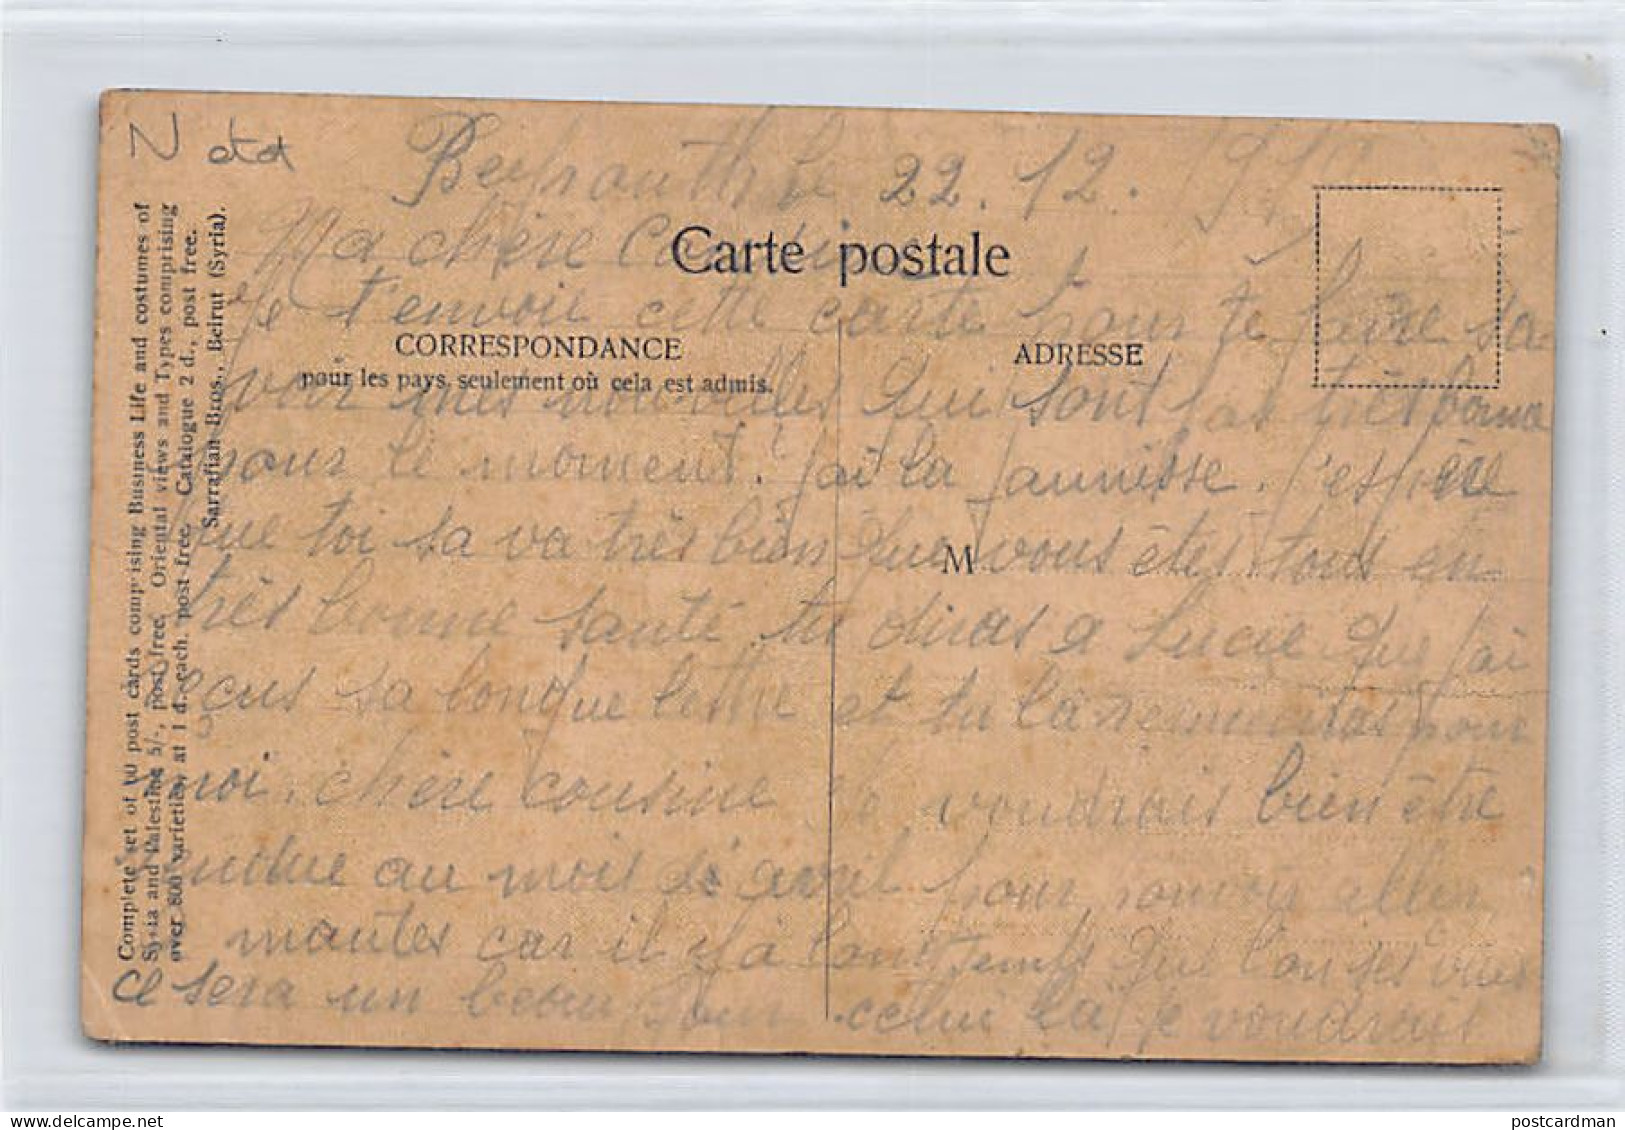 N
Beyrouth le 22.12.191
Ma chère Cousine
Carte postale
Je t'envoie cette carte pour te faire sa-
CORRESPONDANCE
ADRESSE
pour les pays, seulement où cela est admis.
voir mes nouvelles qui sont pas très bonne
pour le moment. J'ai la jaunisse. J'espère
que toi sa va très bien que vous êtes tous en
M
très bonne santé tu diras a Lucie que j'ai
reçus sa longue lettre et tu la remercieras pour
moi. chère cousine je voudrais bien être
rendue au mois d'avril pour pouvoir aller
mantes car il y a longtemps que l'on ses vues
ce sera un beau jour celui la je voudrais
Complete set of 60 post cards comprising Business Life and costumes of
Syria and Palestine 5/-, post free. Oriental views and Types comprising
over 800 varieties, at 1 d. each. post free. Catalogue 2 d., post free.
Sarrafian Bros., Beirut (Syria).
postcardman